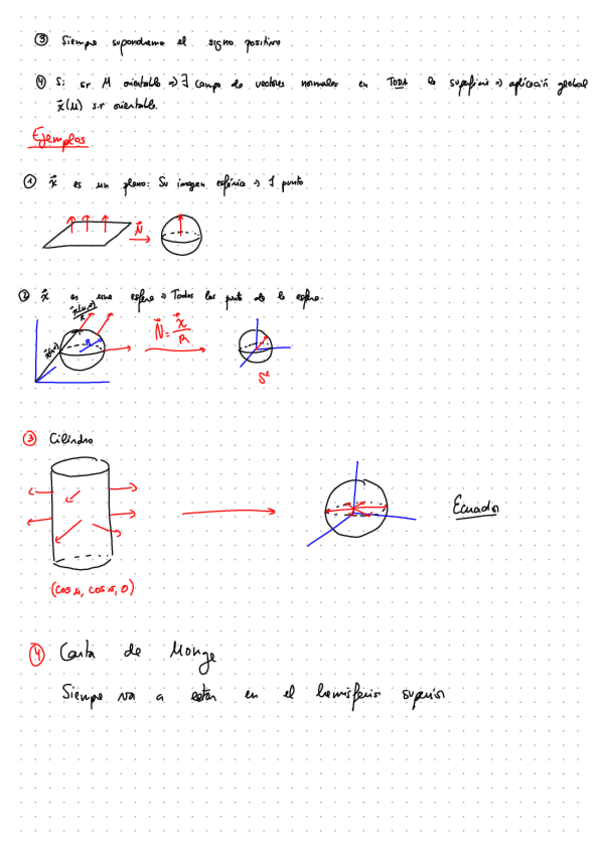 ③ Siempre supondremos el signo positivo
④ Si sr M orientable ⇒ ∃ campo de vectores normales en TODA la superficie ⇒ aplicación global
x⃗(u) s.r orientable.
Ejemplos
① x⃗ es un plano: Su imagen esférica ⇒ 1 punto
N⃗
② x⃗ es una esfera ⇒ Todos los punto de la esfera.
N⃗ = x⃗/R
R
S²
③ Cilindro
Ecuador
(cos u, cos v, 0)
④ Carta de Monge
Siempre va a estar en el hemisferio superior